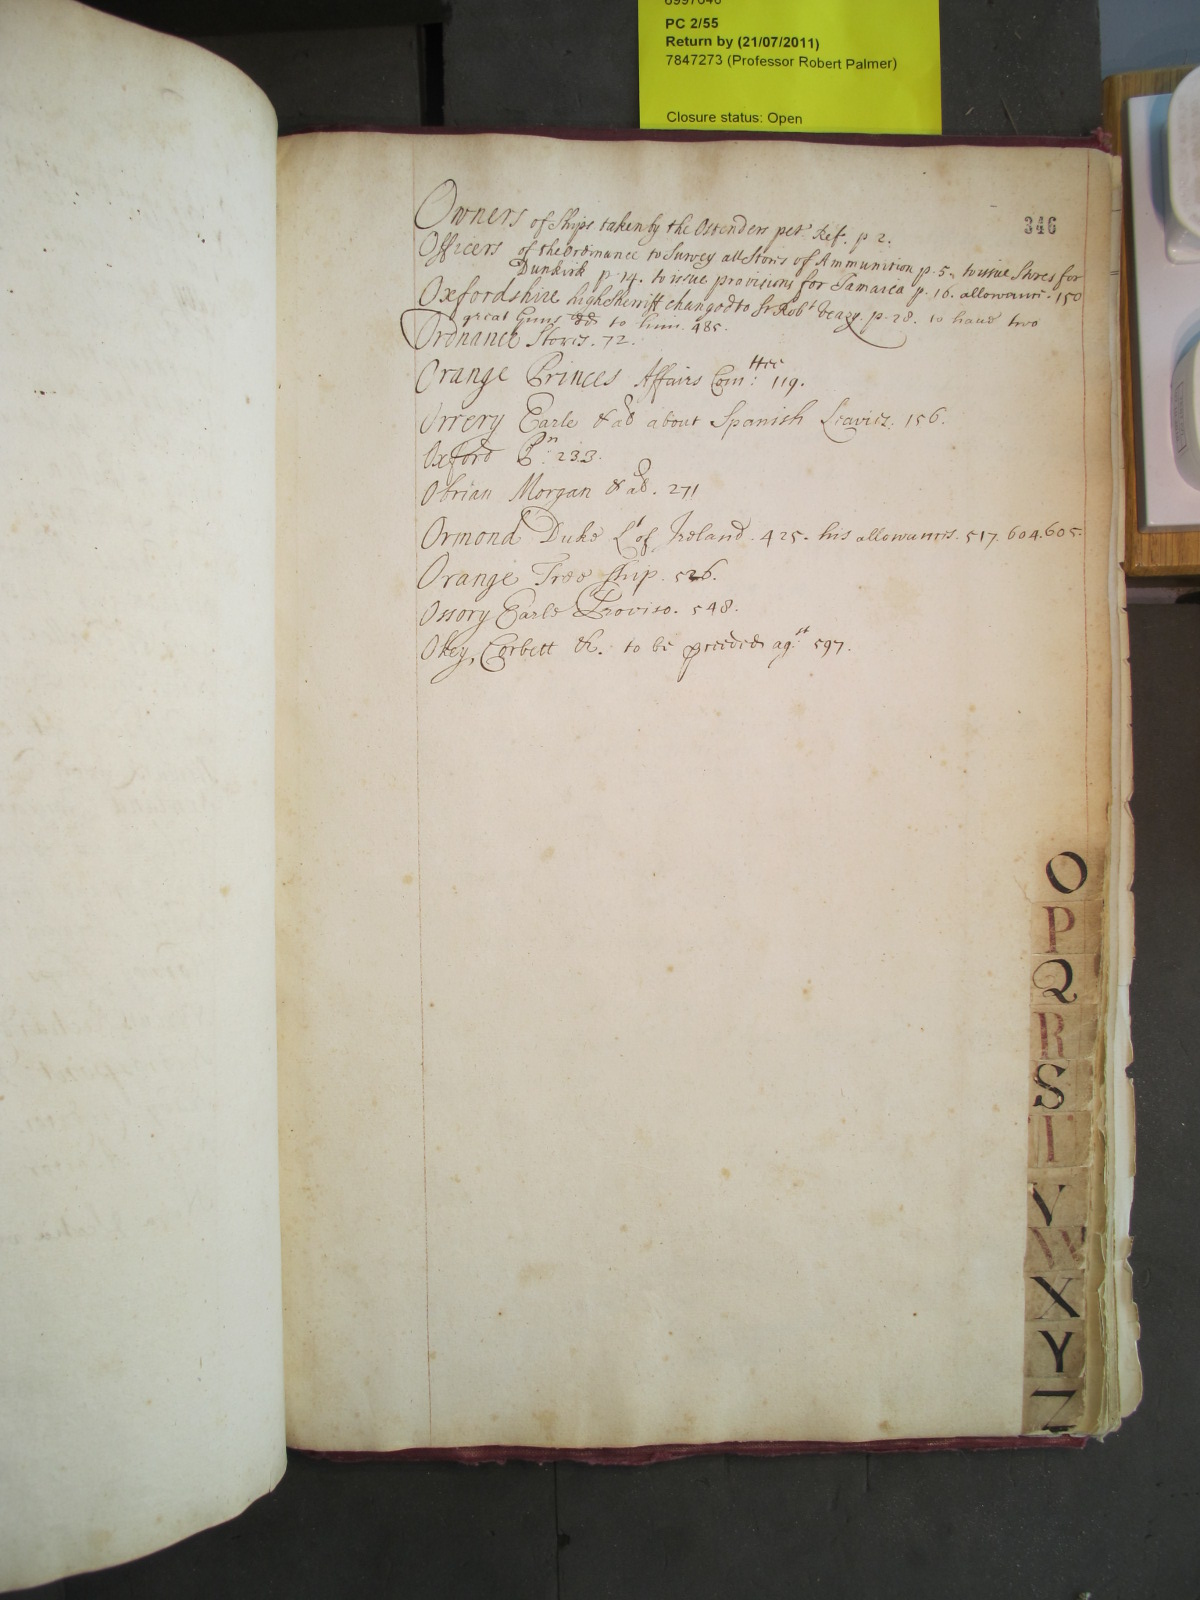 PC 2/55
Return by (21/07/2011)
7847273 (Professor Robert Palmer)
Closure status: Open
346
Owners of Ships taken by the Ostenders petn Ref. p 2.
Officers of the Ordinance to Survey all Stores of Ammunition p. 5. to issue Stores for
Dunkirk p. 14. to issue provisions for Jamaica p. 16. allowance. 150
Oxfordshire high Sherriff changed to Sr Robt p. 28. to have two
great Guns dd to him. 485.
Ordnance Stores. 72.
Orange Princes Affairs Com:ttee 119.
Orrery Earle & al about Spanish Leavies. 156.
Oxford Pn: 233.
Obrian Morgan & al. 271
Ormond Duke Lt of Ireland. 425. his allowances. 517. 604. 605.
Orange Tree Ship. 526.
Ossory Earle Proviso. 548.
Okey, Corbett &c. to be proceeded agst 597.
O
P
Q
R
S
T
V
W
X
Y
Z